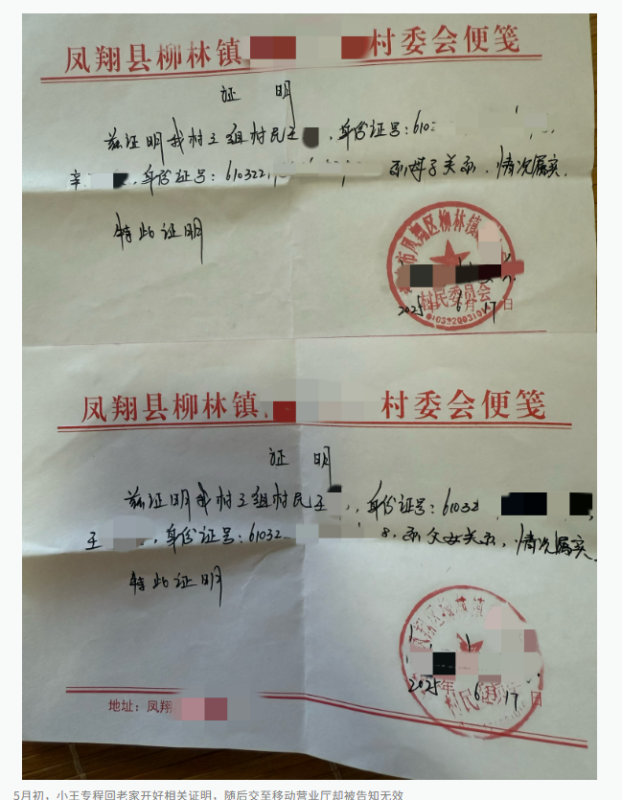 凤翔县柳林镇 村委会便笺
证 明
兹证明我村三组村民王 ,身份证号:610
辛 ,身份证号:610322 系母子关系,情况属实.
特此证明
市凤翔区柳林镇
村民委员会
2025年6月17日
凤翔县柳林镇 村委会便笺
证 明
兹证明我村三组村民王 ,身份证号:61032
王 ,身份证号:61032 8.系父女关系,情况属实.
特此证明
凤翔区柳林镇
村民
2025年6月17日
地址:凤翔
5月初,小王专程回老家开好相关证明,随后交至移动营业厅却被告知无效